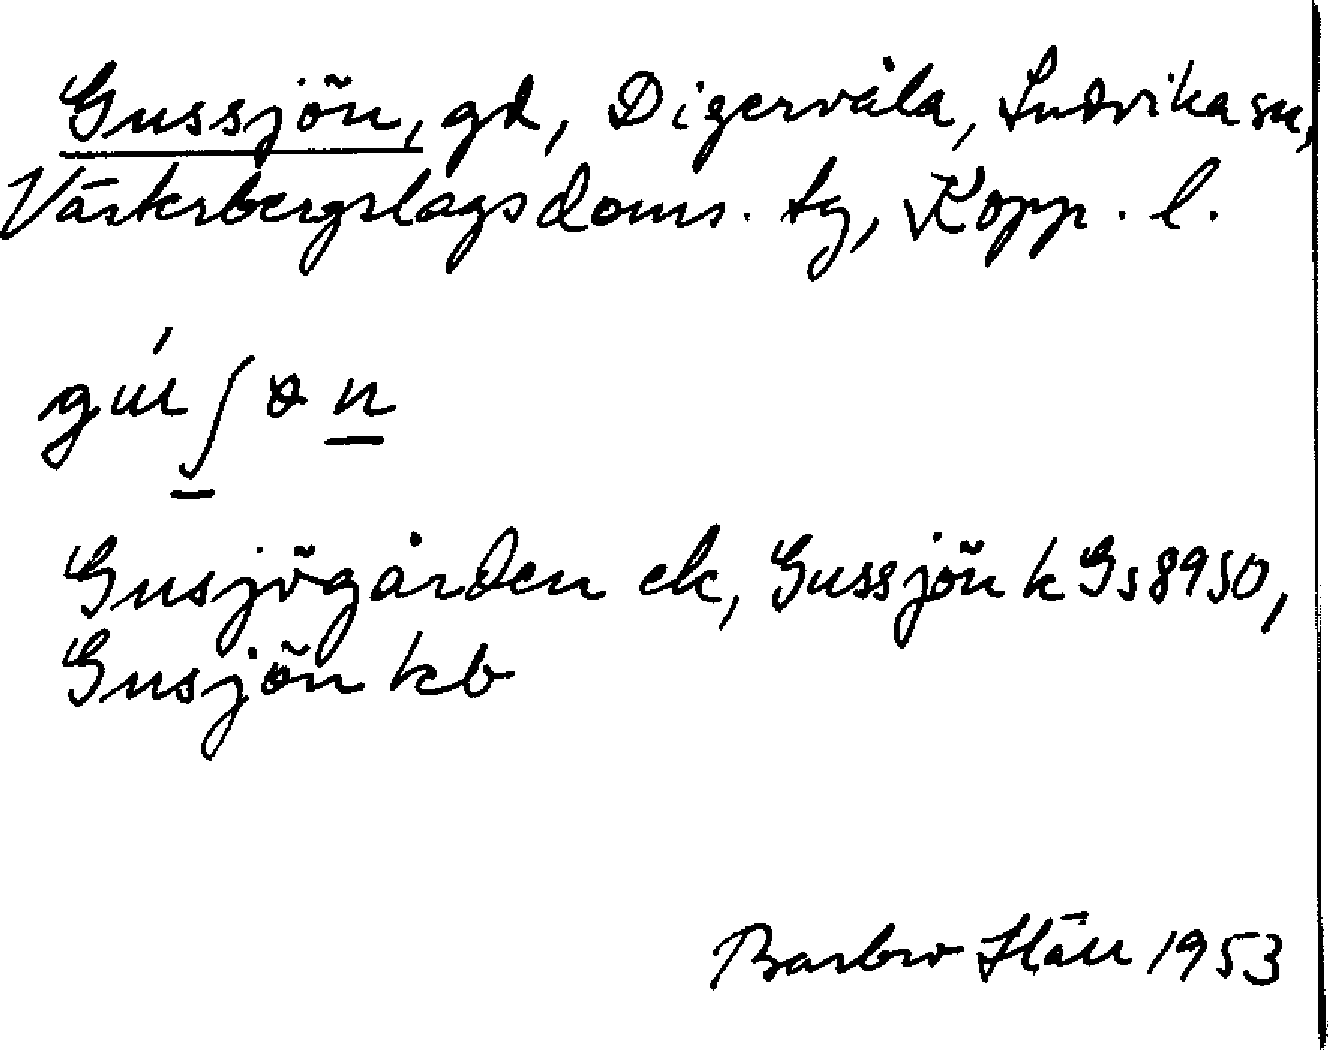 Gussjön, gd, Digervåla, Ludvika sn,
Västerbergslags doms. tg, Kopp. l.
gúʃɷn
Gusjögården ek, Gussjön k Gs 8950,
Gusjön kb
Barbro 1953